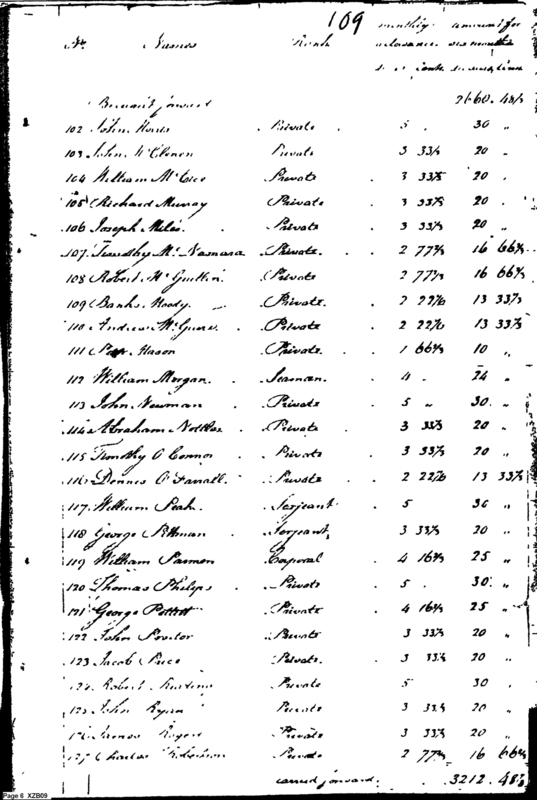 109
No. Names Rank monthly allowance amount for six months
Brought forward 2660. 48⅓
102 John Norris Private 5 „ 30 „
103 John McClenen Private 3 33⅓ 20 „
104 William McCice Private 3 33⅓ 20 „
105 Richard Murray Private 3 33⅓ 20 „
106 Joseph Miles Private 3 33⅓ 20 „
107 Timothy McNamara Private 2 77⅔ 16 66⅔
108 Robert McGuttin Private 2 77⅔ 16 66⅔
109 Banks Moody Private 2 22⅔ 13 33⅓
110 Andrew McGuere Private 2 22⅔ 13 33⅓
111 Mason Private 1 66⅔ 10 „
112 William Morgan Seaman 4 „ 24 „
113 John Newman Private 5 „ 30 „
114 Abraham Private 3 33⅓ 20 „
115 Timothy O Connor Private 3 33⅓ 20 „
116 Dennis O Farrall Private 2 22⅔ 13 33⅓
117 William Serjeant 5 30 „
118 George Pittman Serjeant 3 33⅓ 20 „
119 William Parmen Corporal 4 16⅔ 25 „
120 Thomas Phelips Private 5 30 „
121 George Private 4 16⅔ 25 „
122 John Proctor Private 3 33⅓ 20 „
123 Jacob Price Private 3 33⅓ 20 „
124 Robert Private 5 30 „
125 John Ryan Private 3 33⅓ 20 „
126 James Rogers Private 3 33⅓ 20 „
127 Charles Roberson Private 2 77⅔ 16 66⅔
carried forward 3212. 48⅓
Page 6 XZB09